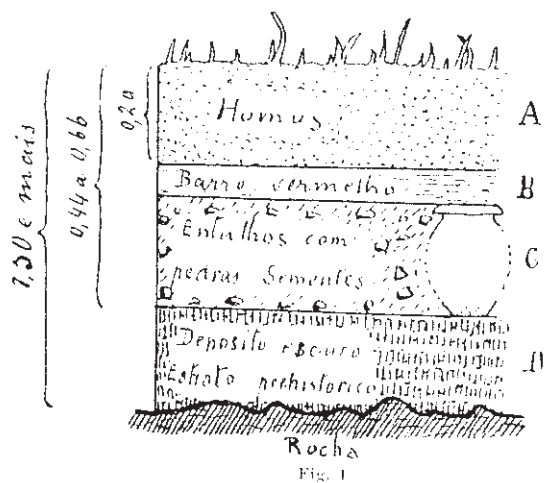 1,30 e mais
0,44 a 0,66
0,20
Homus
A
Barro vermelho
B
Entulhos com
pedras Sementes
C
Deposito escuro
Estrato prehistorico
D
Rocha
Fig. 1